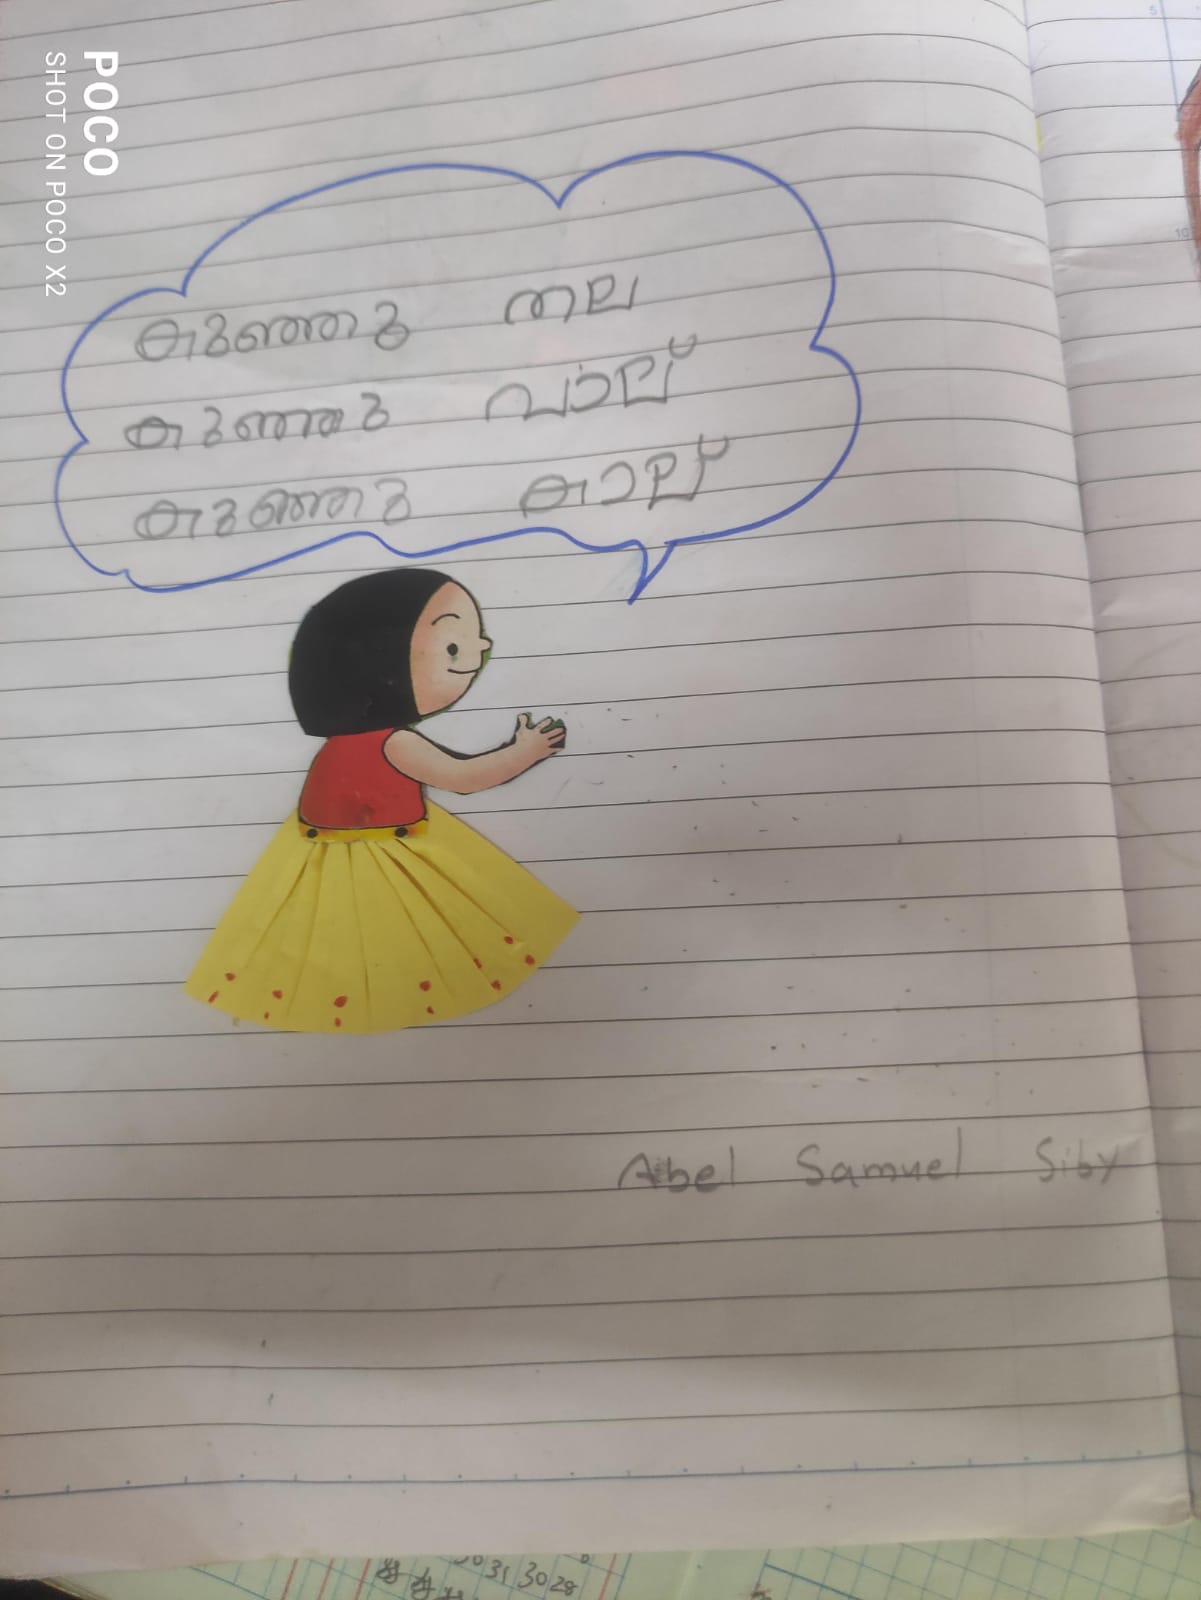 കുഞ്ഞു തല
കുഞ്ഞു വാല്
കുഞ്ഞു കാല്
Abel Samuel Siby
POCO
SHOT ON POCO X2
31 30 28